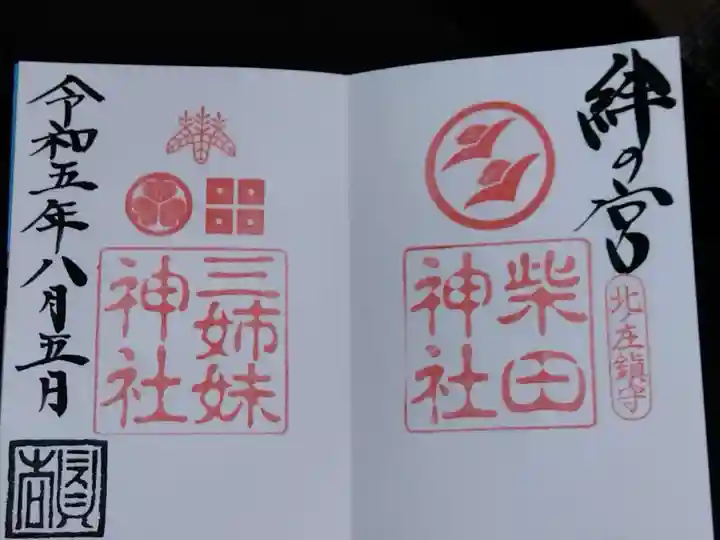 絆の宮
北ノ庄鎮守
柴田
神社
三姉妹
神社
令和五年八月五日